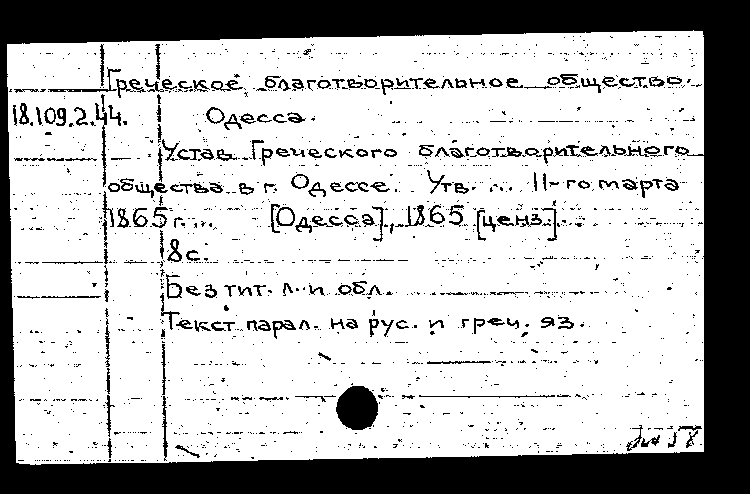 Греческое благотворительное общество.
18.109.2.44. Одесса.
Устав Греческого благотворительного
общества в г. Одессе. Утв. ... 11-го марта
1865 г. ... [Одесса], 1865 [ценз.].
8 с.
Без тит. л. и обл.
Текст парал. на рус. и греч. яз.